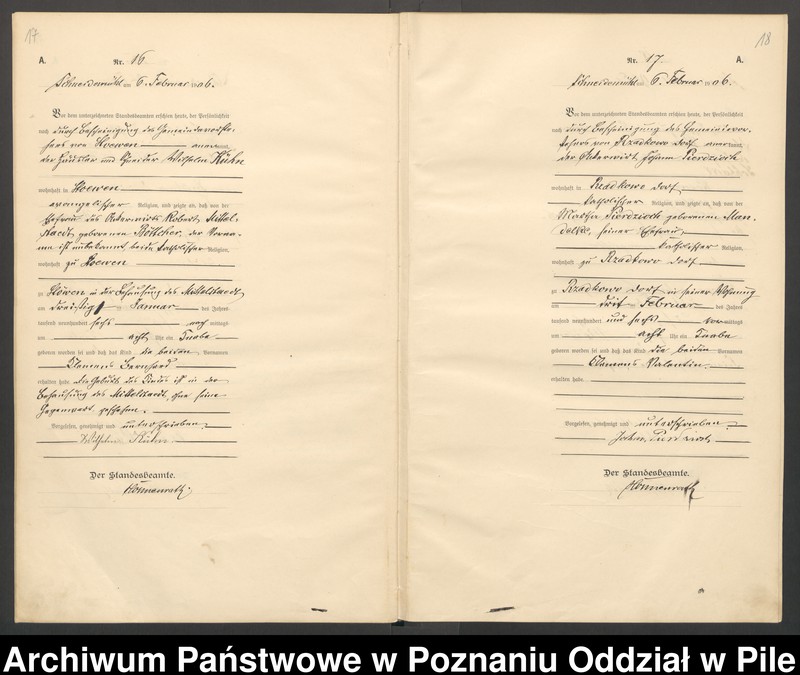 17
A.
Nr. 16.
Schneidemühl am 6. Februar 1906.
Vor dem unterzeichneten Standesbeamten erschien heute, der Persönlichkeit
nach durch Bescheinigung des Gemeindevorste-
hers von Stoewen anerkannt,
der Häusler und Wilhelm Kühn
wohnhaft in Stoewen
evangelischer Religion, und zeigte an, daß von der
Ehefrau des Ackerwirts Robert Mittel-
staedt geborenen Böttcher, der Vorna-
me ist unbekannt, beide katholischer Religion,
wohnhaft zu Stoewen
zu Stöwen in der Behausung des Mittelstaedt
am dreißig Januar des Jahres
tausend neunhundert sechs nach mittags
um acht Uhr ein Knabe
geboren worden sei und daß das Kind die beiden Vornamen
Klemens Bernhard
erhalten habe. Die Geburt des Kindes ist in der
Behausung des Mittelstaedt, ohne seine
Gegenwart geschehen.
Vorgelesen, genehmigt und unterschrieben.
Wilhelm Kühn
Der Standesbeamte.
18
Nr. 17.
A.
Schneidemühl am 6. Februar 1906.
Vor dem unterzeichneten Standesbeamten erschien heute, der Persönlichkeit
nach durch Bescheinigung des Gemeindevor-
stehers von Rzadkowo Dorf anerkannt,
der Ackerwirt Johann Pierdzioch
wohnhaft in Rzadkowo Dorf
katholischer Religion, und zeigte an, daß von der
Martha Pierdzioch geborenen Man-
seiner Ehefrau
katholischer Religion,
wohnhaft zu Rzadkowo Dorf
zu Rzadkowo Dorf in seiner Wohnung
am drit Februar des Jahres
tausend neunhundert und sechs vor mittags
um acht Uhr ein Knabe
geboren worden sei und daß das Kind die beiden Vornamen
Klemens Valentin
erhalten habe.
Vorgelesen, genehmigt und unterschrieben
Der Standesbeamte.
Archiwum Państwowe w Poznaniu Oddział w Pile